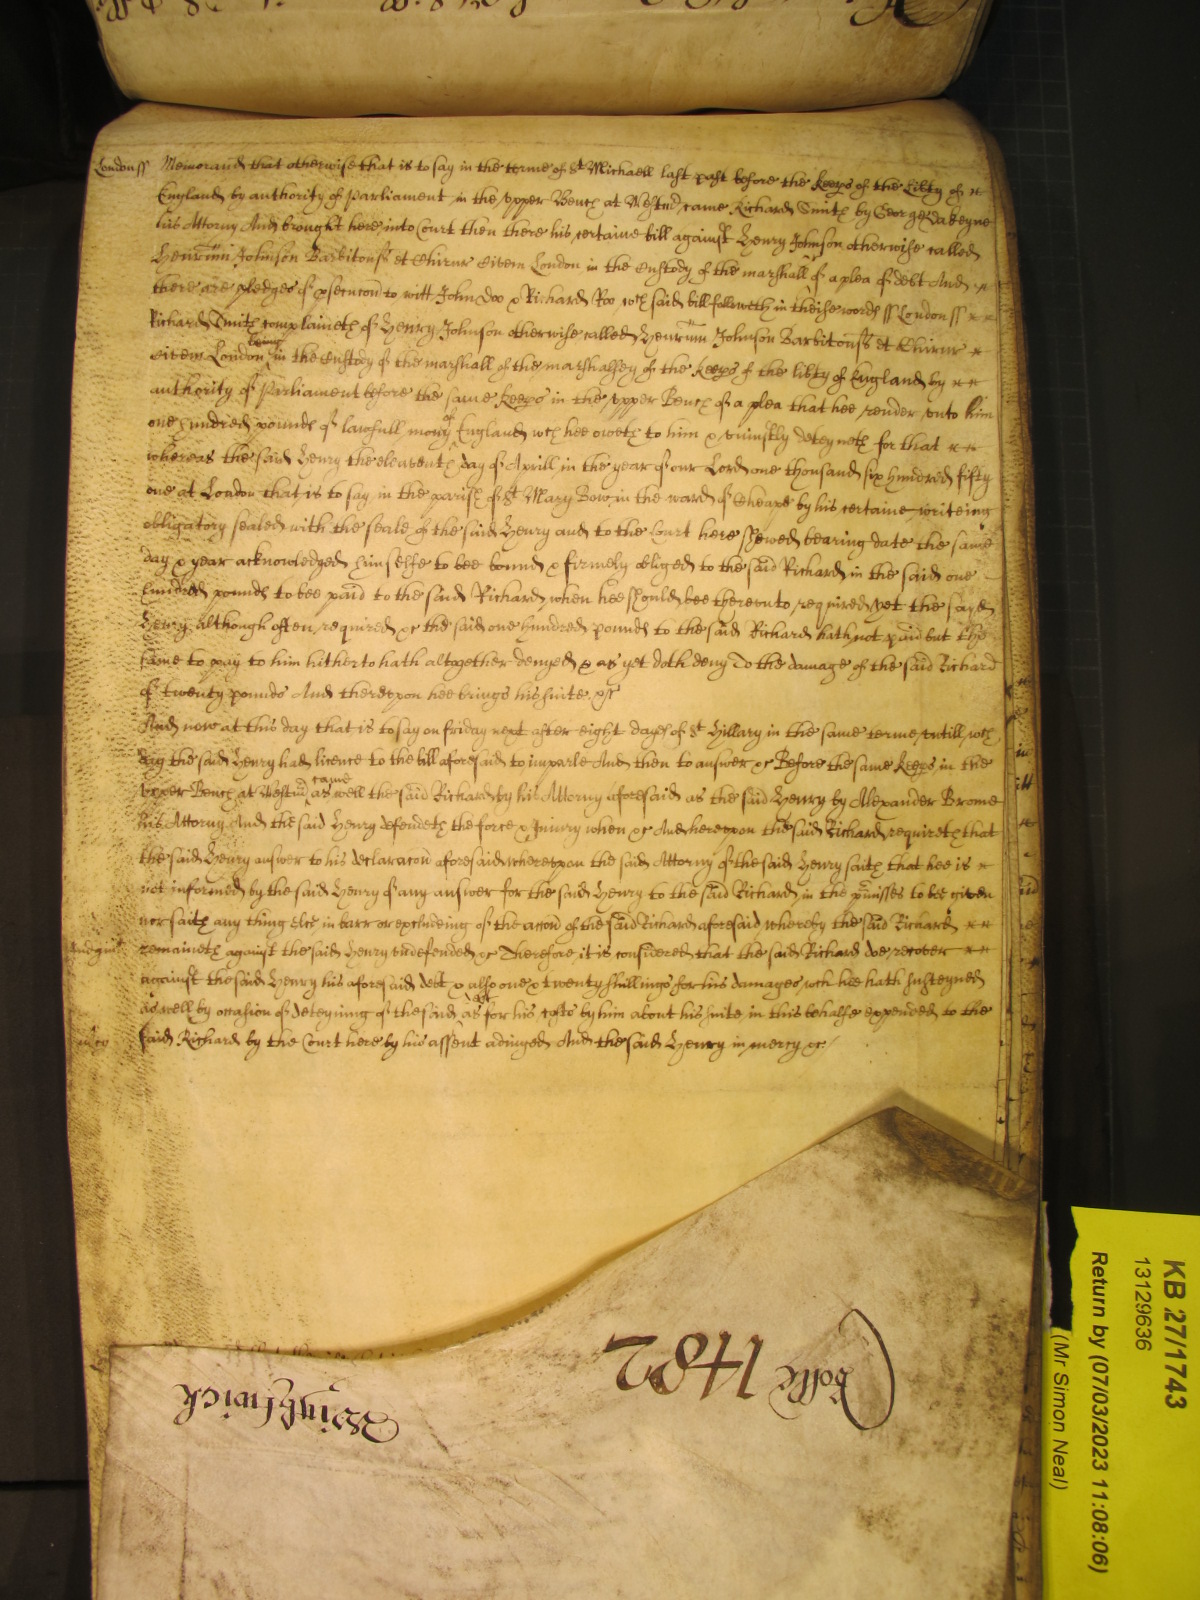 London ss Memorand that otherwise that is to say in the terme of St Michaell last past before the keeps of the libty of
England by authority of Parliament in the upper Bench at Westm came Richard Smith by George Dakeyne
his Attorny And brought here into Court then there his certaine bill against Henry Johnson otherwise called
Henricum Johnson Barbitons et Chirur Civem London in the Custody of the marshall of a plea of debt And
there are pledges of psecucon to witt John Doo & Richard Roo wch said bill followeth in theise words ss London ss
Richard Smith complaineth of Henry Johnson otherwise called Henricum Johnson Barbitons et Chirur
Civem London being in the Custody of the marshall of the marshalsey of the keeps of the libty of England by
authority of Parliament before the same keeps in the upper Bench of a plea that hee render unto him
one hundred pounds of lawfull mony of England wch hee oweth to him & uniustly deteyneth for that
whereas the said Henry the eleaventh day of Aprill in the year of our Lord one thousand six hundred fifty
one at London that is to say in the parish of St Mary Bow in the ward of Cheape by his certaine writeing
obligatory sealed with the seale of the said Henry and to the Court here shewed bearing date the same
day & year acknowledged himselfe to bee bound & firmely obliged to the said Richard in the said one
hundred pounds to bee paid to the said Richard when hee should bee thereunto required yet the sayd
Henry although often required &c the said one hundred pounds to the said Richard hath not paid but the
same to pay to him hitherto hath altogether denyed & as yet doth deny To the damage of the said Richard
of twenty pounds And thereupon hee brings his suite &c
And now at this day that is to say on friday next after eight dayes of St Hillary in the same terme untill wch
day the said Henry had licence to the bill aforesaid to imparle And then to answer &c Before the same keeps in the
upper Bench at Westm came as well the said Richard by his Attorny aforesaid as the said Henry by Alexander Brome
his Attorny And the said Henry defendeth the force & Iniury when &c And hereupon the said Richard requireth that
the said Henry answer to his declaracon aforesaid whereupon the said Attorny of the said Henry saith that hee is
not informed by the said Henry of any answer for the said Henry to the said Richard in the pmisses to bee given
nor saith any thing else in barr or excluding of the accon of the said Richard aforesaid whereby the said Richard
remaineth against the said Henry undefended &c Therefore it is considered that the said Richard doe recover
against the said Henry his aforesaid debt & also one & twenty shillings for his damages wch hee hath susteyned
as well by occasion of deteyning of the said debt as for his costs by him about his suite in this behalfe expended to the
said Richard by the Court here by his assent adiudged And the said Henry in mercy &c
Rolle 1482
Wightwick
KB 27/1743
13129636
Return by (07/03/2023 11:08:06)
(Mr Simon Neal)